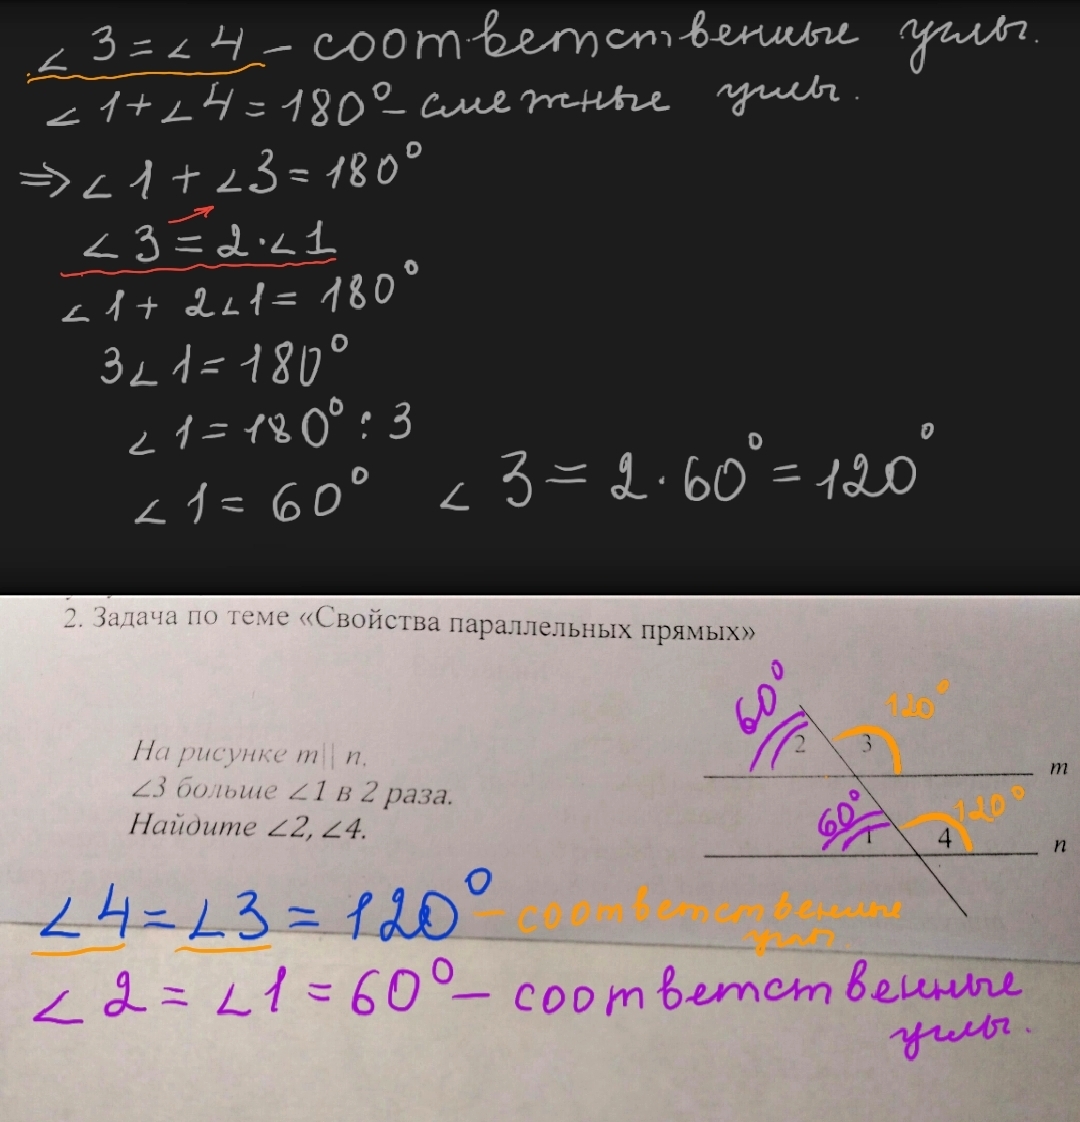 ∠3=∠4 – соответственные углы.
∠1+∠4=180° – смежные углы.
⇒∠1+∠3=180°
∠3=2·∠1
∠1+2∠1=180°
3∠1=180°
∠1=180°:3
∠1=60° ∠3=2·60°=120°
2. Задача по теме «Свойства параллельных прямых»
60° 120°
2 3
На рисунке m || n,
m
∠3 больше ∠1 в 2 раза.
60° 120°
Найдите ∠2, ∠4.
1 4 n
∠4=∠3=120° – соответственные
углы.
∠2=∠1=60° – соответственные
углы.